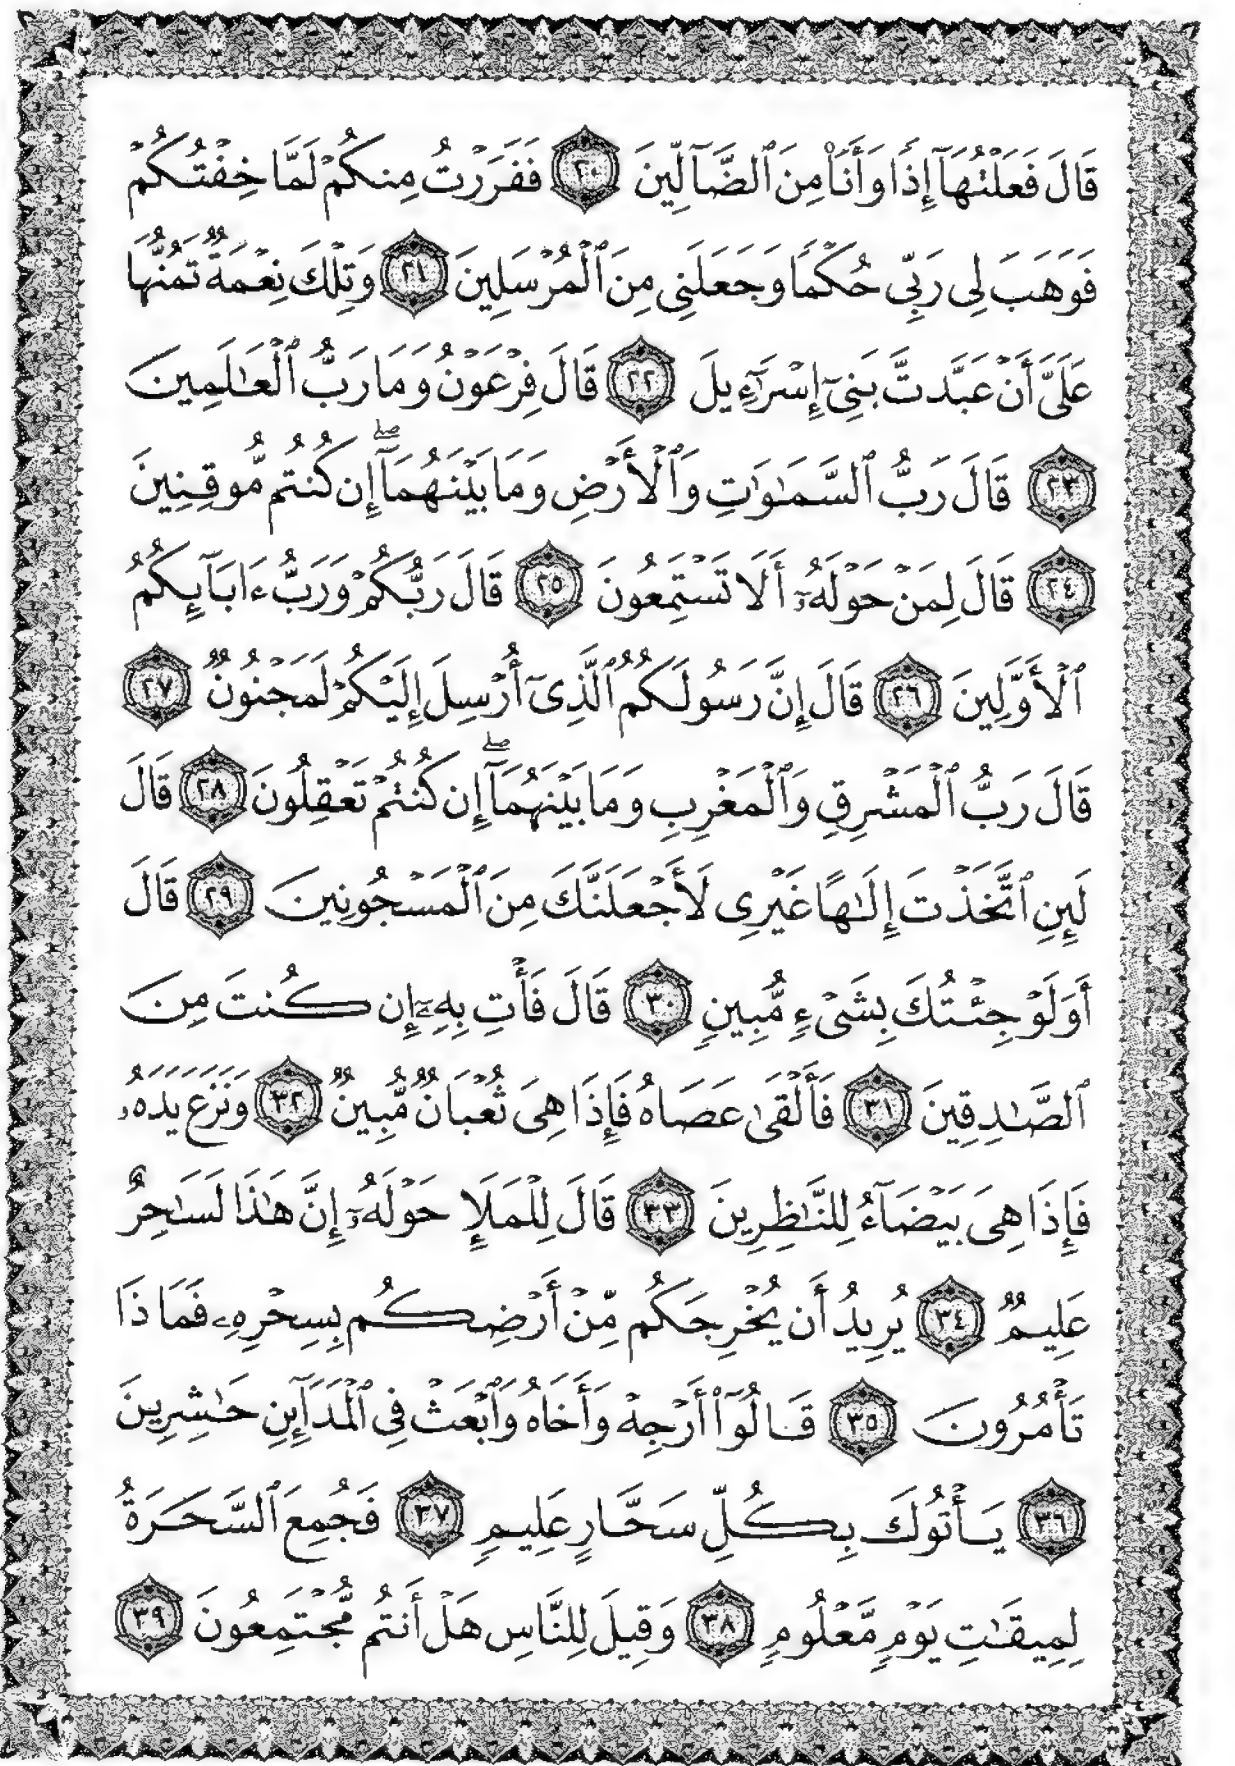 قَالَ فَعَلْتُهَآ إِذًا وَأَنَا۠ مِنَ ٱلضَّآلِّينَ ۝٢٠ فَفَرَرْتُ مِنكُمْ لَمَّا خِفْتُكُمْ
فَوَهَبَ لِى رَبِّى حُكْمًا وَجَعَلَنِى مِنَ ٱلْمُرْسَلِينَ ۝٢١ وَتِلْكَ نِعْمَةٌ تَمُنُّهَا
عَلَىَّ أَنْ عَبَّدتَّ بَنِىٓ إِسْرَٰٓءِيلَ ۝٢٢ قَالَ فِرْعَوْنُ وَمَا رَبُّ ٱلْعَٰلَمِينَ
۝٢٣ قَالَ رَبُّ ٱلسَّمَٰوَٰتِ وَٱلْأَرْضِ وَمَا بَيْنَهُمَآ ۖ إِن كُنتُم مُّوقِنِينَ
۝٢٤ قَالَ لِمَنْ حَوْلَهُۥٓ أَلَا تَسْتَمِعُونَ ۝٢٥ قَالَ رَبُّكُمْ وَرَبُّ ءَابَآئِكُمُ
ٱلْأَوَّلِينَ ۝٢٦ قَالَ إِنَّ رَسُولَكُمُ ٱلَّذِىٓ أُرْسِلَ إِلَيْكُمْ لَمَجْنُونٌ ۝٢٧
قَالَ رَبُّ ٱلْمَشْرِقِ وَٱلْمَغْرِبِ وَمَا بَيْنَهُمَآ ۖ إِن كُنتُمْ تَعْقِلُونَ ۝٢٨ قَالَ
لَئِنِ ٱتَّخَذْتَ إِلَٰهًا غَيْرِى لَأَجْعَلَنَّكَ مِنَ ٱلْمَسْجُونِينَ ۝٢٩ قَالَ
أَوَلَوْ جِئْتُكَ بِشَىْءٍ مُّبِينٍ ۝٣٠ قَالَ فَأْتِ بِهِۦٓ إِن كُنتَ مِنَ
ٱلصَّٰدِقِينَ ۝٣١ فَأَلْقَىٰ عَصَاهُ فَإِذَا هِىَ ثُعْبَانٌ مُّبِينٌ ۝٣٢ وَنَزَعَ يَدَهُۥ
فَإِذَا هِىَ بَيْضَآءُ لِلنَّٰظِرِينَ ۝٣٣ قَالَ لِلْمَلَإِ حَوْلَهُۥٓ إِنَّ هَٰذَا لَسَٰحِرٌ
عَلِيمٌ ۝٣٤ يُرِيدُ أَن يُخْرِجَكُم مِّنْ أَرْضِكُم بِسِحْرِهِۦ فَمَاذَا
تَأْمُرُونَ ۝٣٥ قَالُوٓا۟ أَرْجِهْ وَأَخَاهُ وَٱبْعَثْ فِى ٱلْمَدَآئِنِ حَٰشِرِينَ
۝٣٦ يَأْتُوكَ بِكُلِّ سَحَّارٍ عَلِيمٍ ۝٣٧ فَجُمِعَ ٱلسَّحَرَةُ
لِمِيقَٰتِ يَوْمٍ مَّعْلُومٍ ۝٣٨ وَقِيلَ لِلنَّاسِ هَلْ أَنتُم مُّجْتَمِعُونَ ۝٣٩